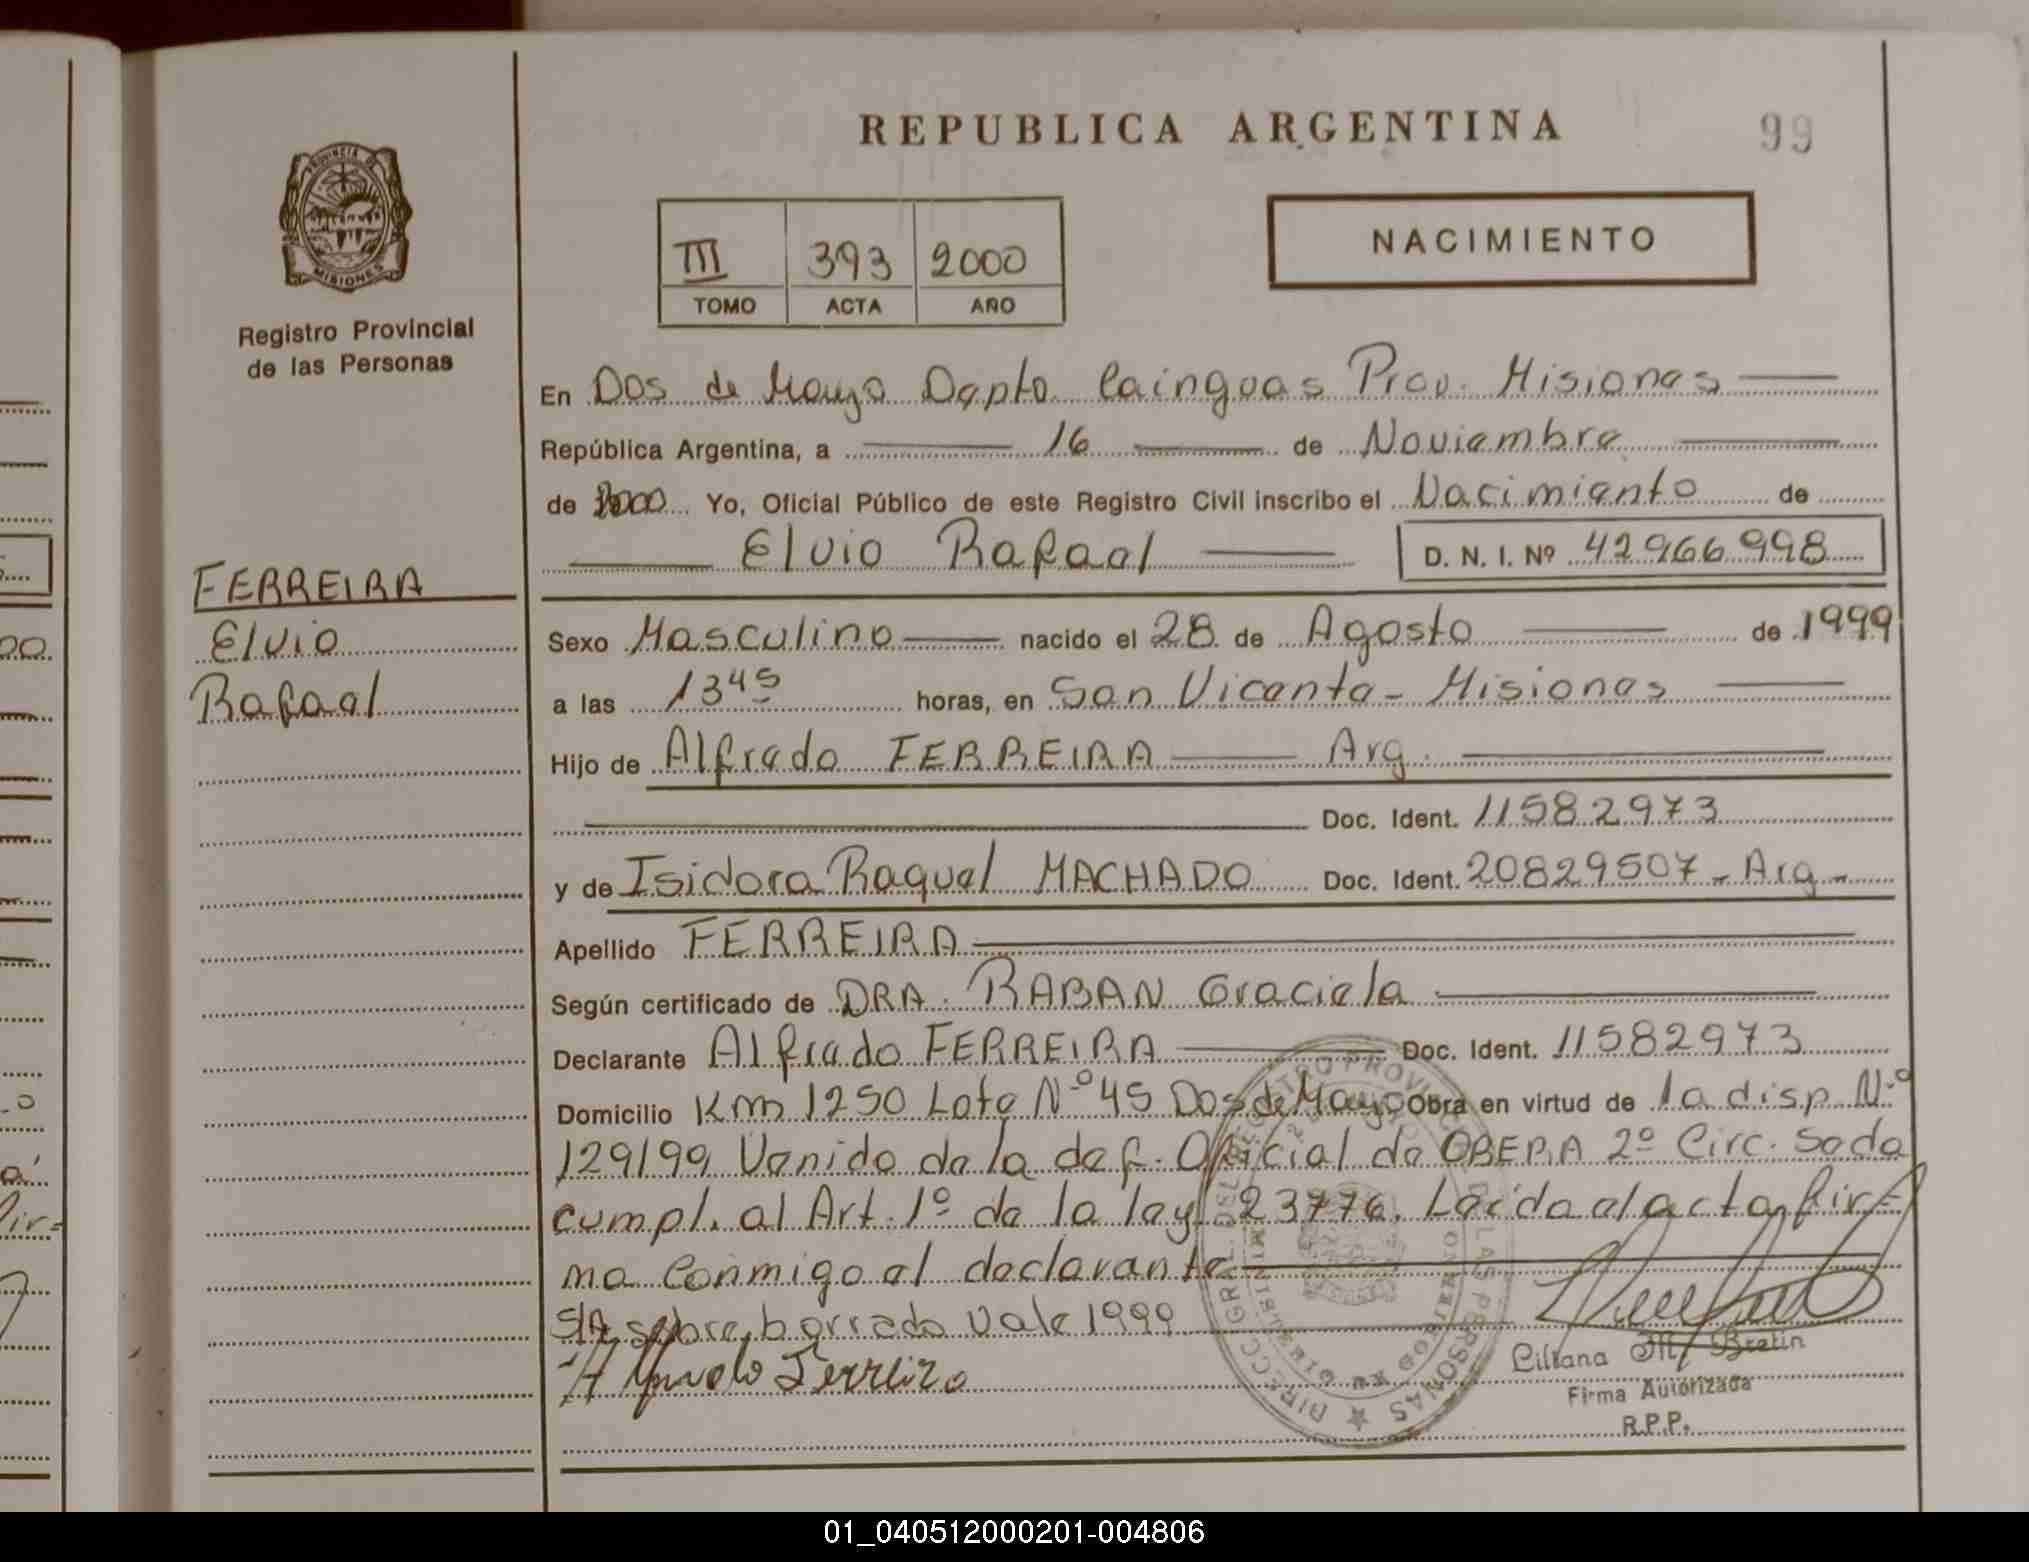 REPUBLICA ARGENTINA
99
PROVINCIA D
MISIONES
Registro Provincial
de las Personas
III 393 2000
TOMO ACTA AÑO
NACIMIENTO
En Dos de Mayo Dapto Cainguas Prov. Misiones
República Argentina, a 16 de Noviembre
de 2000 Yo, Oficial Público de este Registro Civil inscribo el Nacimiento de
Elvio Rafael D. N. I. Nº 42966998
FERREIRA
Elvio
Rafael
Sexo Masculino nacido el 28 de Agosto de 1999
a las 13 45 horas, en San Vicente - Misiones
Hijo de Alfredo FERREIRA Arg.
Doc. Ident. 11582973
y de Isidora Raquel MACHADO Doc. Ident. 20829507 - Arg -
Apellido FERREIRA
Según certificado de DRA. RABAN Graciela
Declarante Alfredo FERREIRA Doc. Ident. 11582973
Domicilio Km 1250 Lote Nº 45 Dos de Mayo Obra en virtud de la disp. Nº
129/99 Venido de la def. Oficial de OBERA 2º Circ. Se da
cumpl. al Art. 1º de la ley 23776. Leida el acta fir=
ma conmigo el declarante
S/A sobre borrado vale 1999
Ferreira
Liliana M. Bretin
Firma Autorizada
R.P.P.
01_040512000201-004806